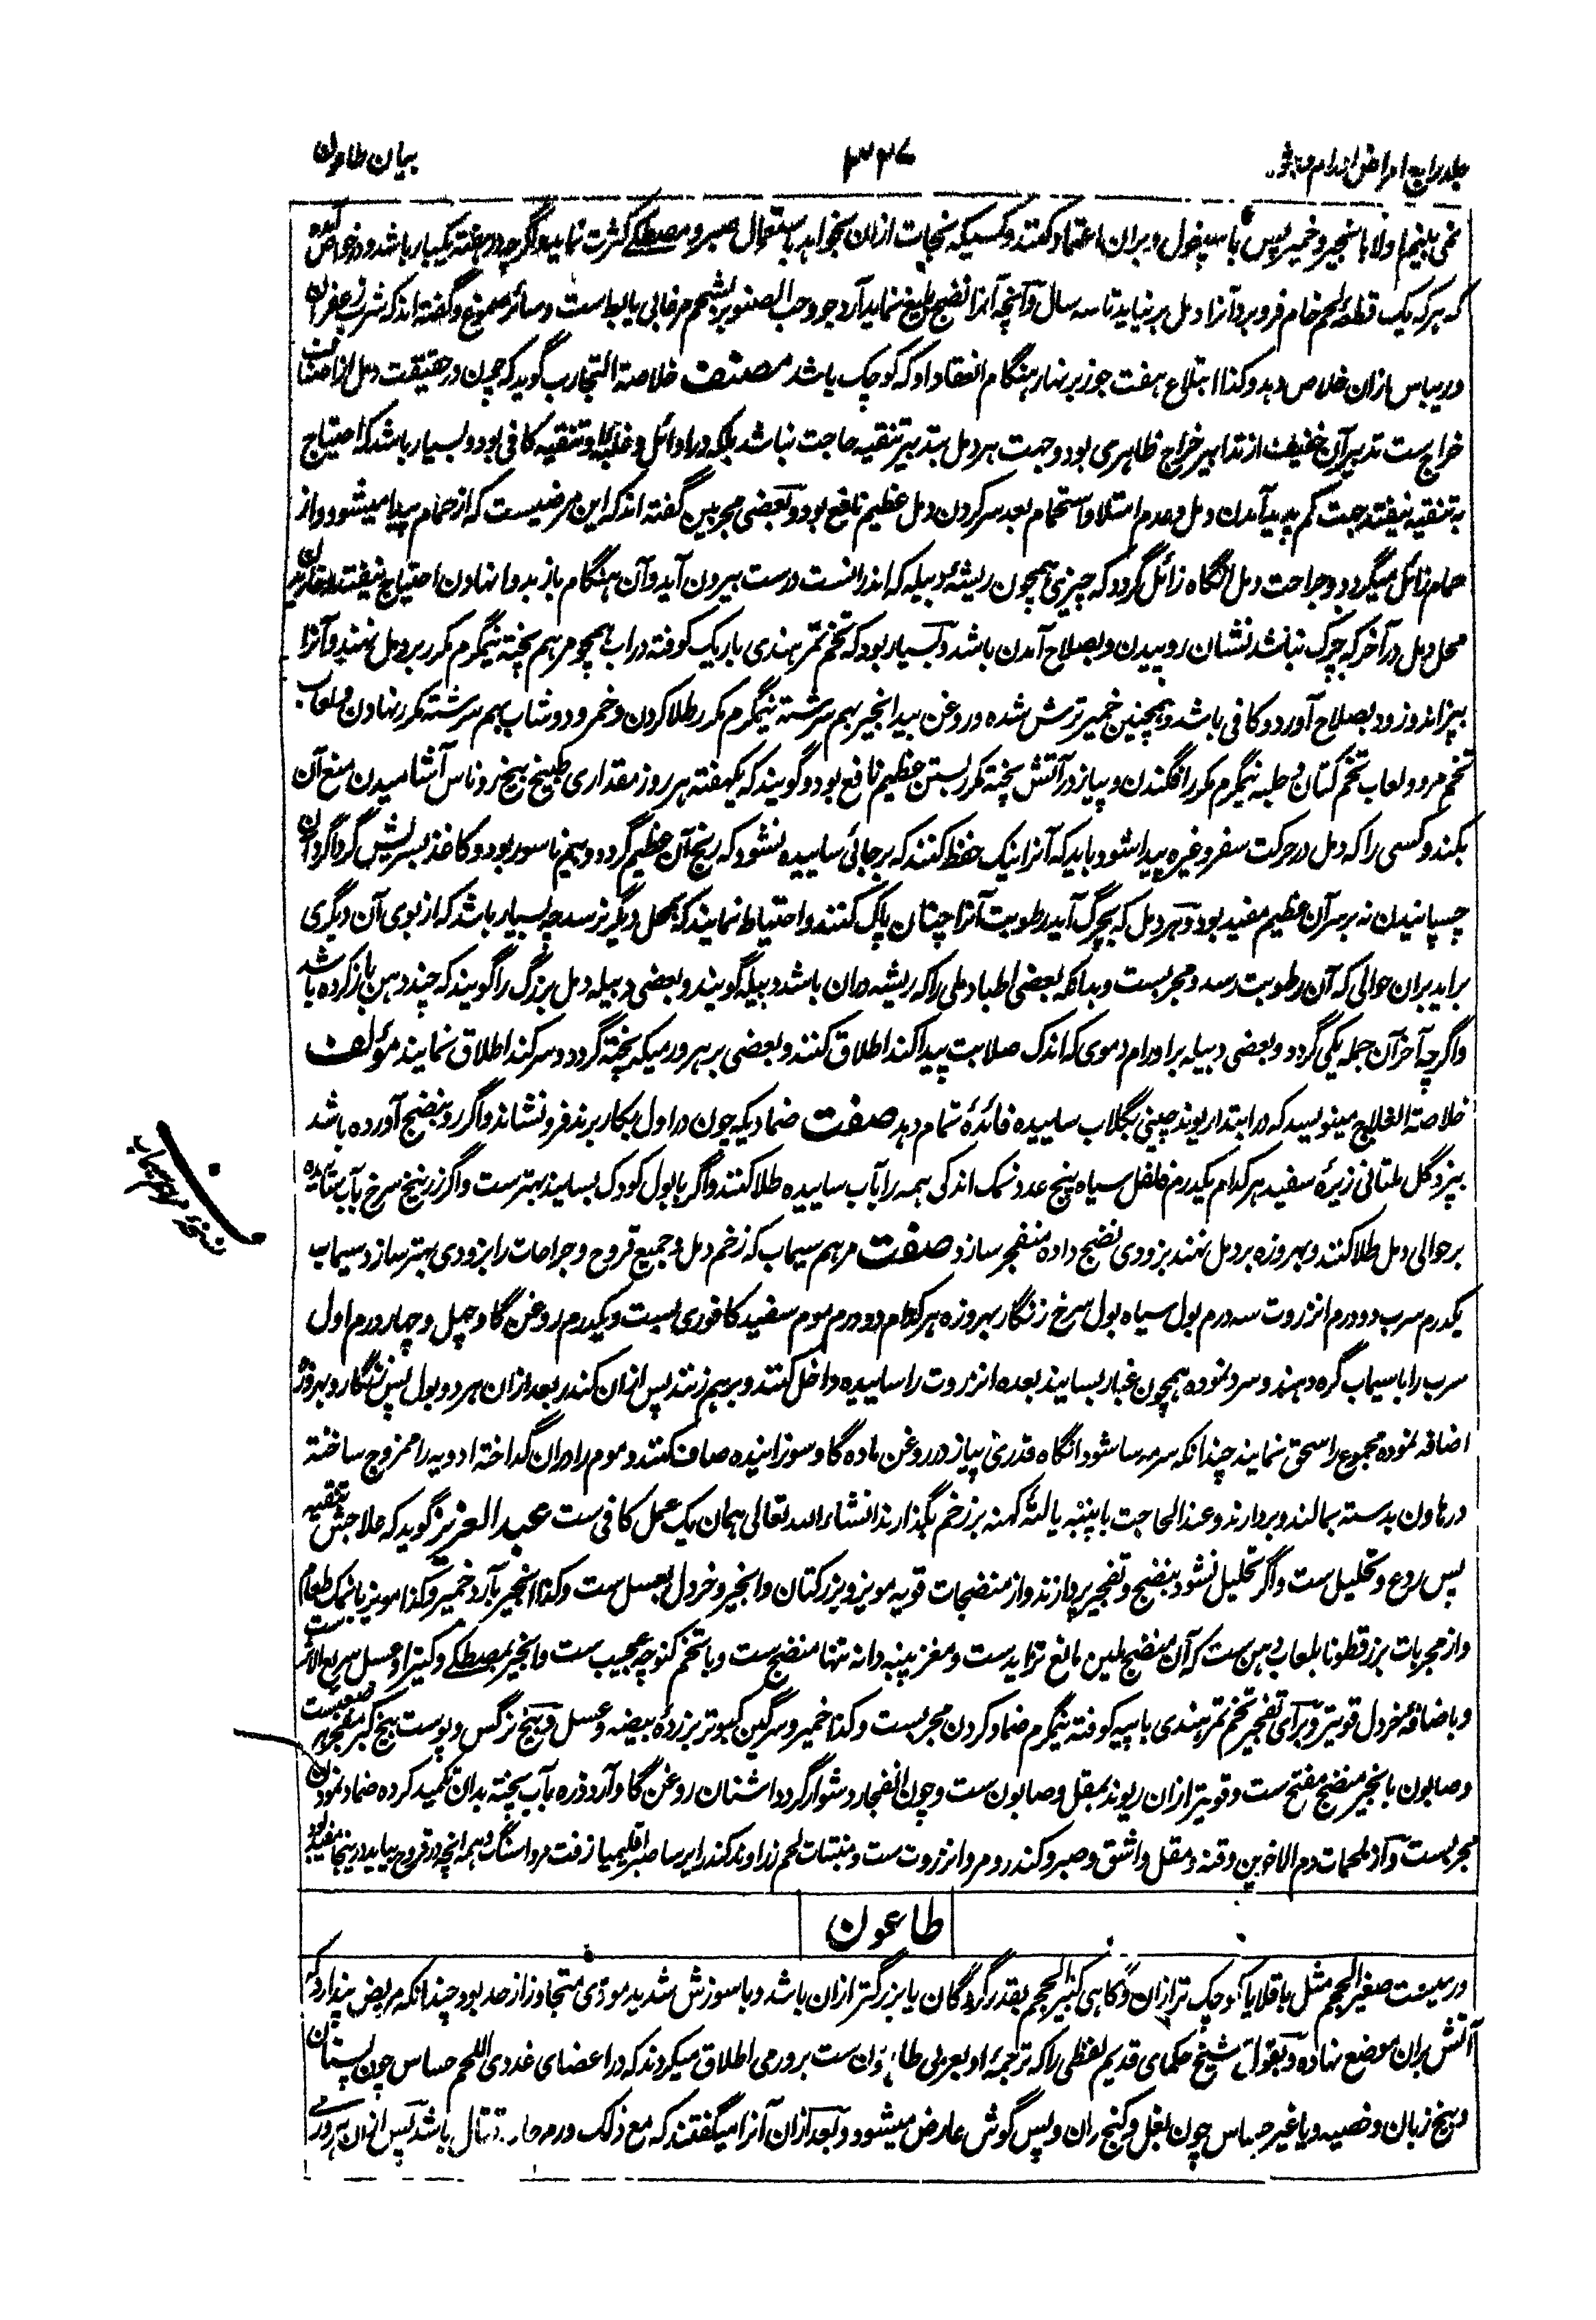 بیان طاعون
۳۳۷
جلد رابع امراض اورام و بثور
نمی بلیخم اولا با نجیر و خمیر پس با سپغول و بران اعتماد کنند و کسیکه نجات ازان بخواهد باستعمال صبر و مصطکے کثرت نماید و اگرچه در هفته یکبار باشد و در خواص گفته
که هر که یک قطعه لحم خام فرو برد آنرا دمل بر نیاید تا سه سال و آنچه آنرا نضج بلیغ نماید آرد جو و حب الصنوبر بشحم مرغابی یا بط است و سائر صموغ و گفته اند که شرب زعفران
و ریباس ازان خلاص دهد و کذا ابتلاع هفت جوز بر نهار هنگام انعقاد او که کوچک باشد مصنف خلاصة التجارب گوید که چون در حقیقت دمل از اصناف
خراج ست تدبیر آن خفیفت از تدابیر خراج ظاهری بود و جهت هر دمل بتدبیر تنقیه حاجت نباشد بلکه در اوائل و غلبه او تنقیه کافی بود و بسیار باشد که احتیاج
به تنقیه نیفتد جهت کم پدید آمدن دمل و عدم امتلا و استحمام بعد سر کردن دمل عظیم نافع بود و بعضی مجربین گفته اند که این مرضیست که از حمام پیدا میشود و از
حمام زائل میگردد و جراحت دمل آنگاه زائل گردد که چیزی همچون ریشه دبیله که اندرانست درست بیرون آید و آن هنگام باز بدوا نهادن احتیاج نیفتد و خارش
محل دمل در آخر که چرک نباشد نشان روییدن و بصلاح آمدن باشد و بسیار بود که تخم تمر هندی باریک کوفته در آب همچو مرهم پخته نیمگرم مکرر بر دمل نهند و آنرا
بپزاند و زود بصلاح آورد و کافی باشد و همچنین خمیر ترش شده و روغن بید انجیر بهم سرشته نیمگرم مکرر طلا کردن و خمر و دوشاب بهم سرشته مکرر نهادن و لعاب
تخم مرو و لعاب تخم کتان و حلبه نیمگرم مکرر افگندن و پیاز در آتش پخته مکرر بستن عظیم نافع بود و گویند که یکهفته هر روز مقداری طبیخ بیخ روناس آشامیدن منع آن
بکند و کسی را که دمل در حرکت سفر و غیره پیدا شود باید که آنرا نیک حفظ کنند که بر جائی ساییده نشود که رنج آن عظیم گردد و بیم ناسور بود و کاغذ بسریش گرداگرد آن
چسپانیدن نه بر سر آن عظیم مفید بود و هر دمل که بچرک آید رطوبت آنرا چنان پاک کنند و احتیاط نمایند که بمحل دیگر نرسد چه بسیار باشد که از بوی آن دیگری
برآید بران حوالی که آن رطوبت رسد و مجربست و بدانکه بعضی اطبا دملی را که ریشه دران باشد دبیله گویند و بعضی دبیله دمل بزرگ را گویند که چند دهن باز کرده باشد
و اگرچه آخر آن جمله یکی گردد و بعضی دبیله بر اورام دموی که اندک صلابت پیدا کند اطلاق کنند و بعضی بر هر ورمیکه پخته گردد و سر کند اطلاق نمایند مؤلف
خلاصة العلاج مینویسد که در ابتدا ریوند چینی بگلاب ساییده فائده تمام دهد صفت ضمادیکه چون در اول بکار برند فرو نشاند و اگر رو بنضج آورده باشد
بپزد گل ملتانی زیره سفید هر کدام یکدرم فلفل سیاه پنج عدد نمک اندکی همه را بآب ساییده طلا کنند و اگر با بول کودک بسایند بهترست و اگر زرنیخ سرخ بآب ساییده
بر حوالی دمل طلا کنند و بهروزه بر دمل نهند بزودی نضج داده منفجر سازد صفت مرهم سیماب که زخم دمل و جمیع قروح و جراحات را بزودی بهتر سازد سیماب
یکدرم سرب دو درم انزروت سه درم بول سیاه بول سرخ زنگار بهروزه هر کدام دو درم موم سفید کافوری بست و یکدرم روغن گاو چهل و چهار درم اول
سرب را با سیماب گره دهند و سرد نموده همچون غبار بسایند بعده انزروت را ساییده داخل کنند و برهم زنند پس ازان کندر بعد ازان هر دو بول پس زنگار و بهروزه
اضافه نموده مجموع را سحق نمایند چندانکه سرمه سا شود انگاه قدری پیاز در روغن ماده گاو سوزانیده صاف کنند و موم را دران گداخته ادویه را ممزوج ساخته
در هاون بدسته بمالند و بردارند و عند الحاجت با پنبه یا لته کهنه بر زخم بگذارند انشاء الله تعالی همان یک عمل کافی ست عبد العزیز گوید که علاجش تنقیه
پس ردع و تحلیل ست و اگر تحلیل نشود بنضج و تفجیر پردازند و از منضجات قویه مویز و بزر کتان و انجیر و خردل بعسل ست و کذا انجیر بآرد خمیر و کذا مویز با نمک طعام
و از مجربات بزر قطونا بلعاب بهن ست که آن منضج ملین مانع تزاید ست و مغز پنبه دانه تنها منضج ست و با تخم کنوچه عجیب ست و انجیر بمصطکے و کتیرا و عسل سریع الاثر ست
و باضافه خردل قویتر و برای تفجیر تخم تمر هندی با پیه کوفته نیمگرم ضماد کردن مجربست و کذا خمیر و سرگین کبوتر بزرده بیضه و عسل و بیخ نرگس و پوست بیخ کبر
و صابون با نجیر منضج مفتح ست و قویتر ازان ریوند بمقل و صابون ست و چون انفجار دشوار گردد اشنان روغن گاو آرد ذره بآب پخته بدان تکمید کرده ضماد نمودن
مجربست و از ملحمات دم الاخوین و قنه و مقل و اشق و صبر و کندر و مر و انزروت ست و منبتات لحم زراوند کندر ایرسا صبر اقلیمیا زفت مرداسنگ و همه انچه در قروح بیاید درینجا مفید بود
نسخه مرهم سیماب
طاعون
ورمیست صغیر الحجم مثل باقلا یا کوچک تر ازان و گاهی کثیر الحجم بقدر گردگان یا بزرگتر ازان باشد و با سوزش شدید موذی متجاوز از حد بود چندانکه مریض پندارد که
آتش بران موضع نهاده و بقول شیخ حکمای قدیم لفظی را که ترجمه او بعربی طاعون ست بر ورمی اطلاق میکردند که در اعضای غددی اللحم حساس چون پستان
و بیخ زبان و خصیه و یا غیر حساس چون بغل و کنج ران و پس گوش عارض میشود و بعد ازان آنرا میگفتند که مع ذلک ورم حار قتال باشد پس ازان بهر ورمے